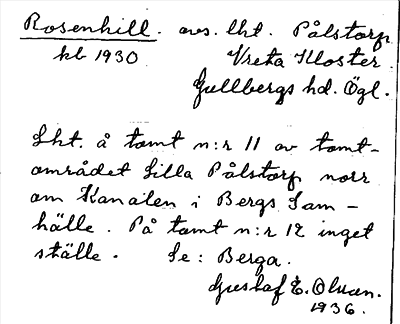 Rosenhill. avs. lht. Pålstorp
kl 1930 Vreta Kloster
Gullbergs hd. Ögl.
Lht. å tomt n:r 11 av tomt-
området Lilla Pålstorp norr
om Kanalen i Bergs Sam-
hälle. På tomt n:r 12 inget
ställe. Se: Berga.
Gustaf E. Olsson.
1936.